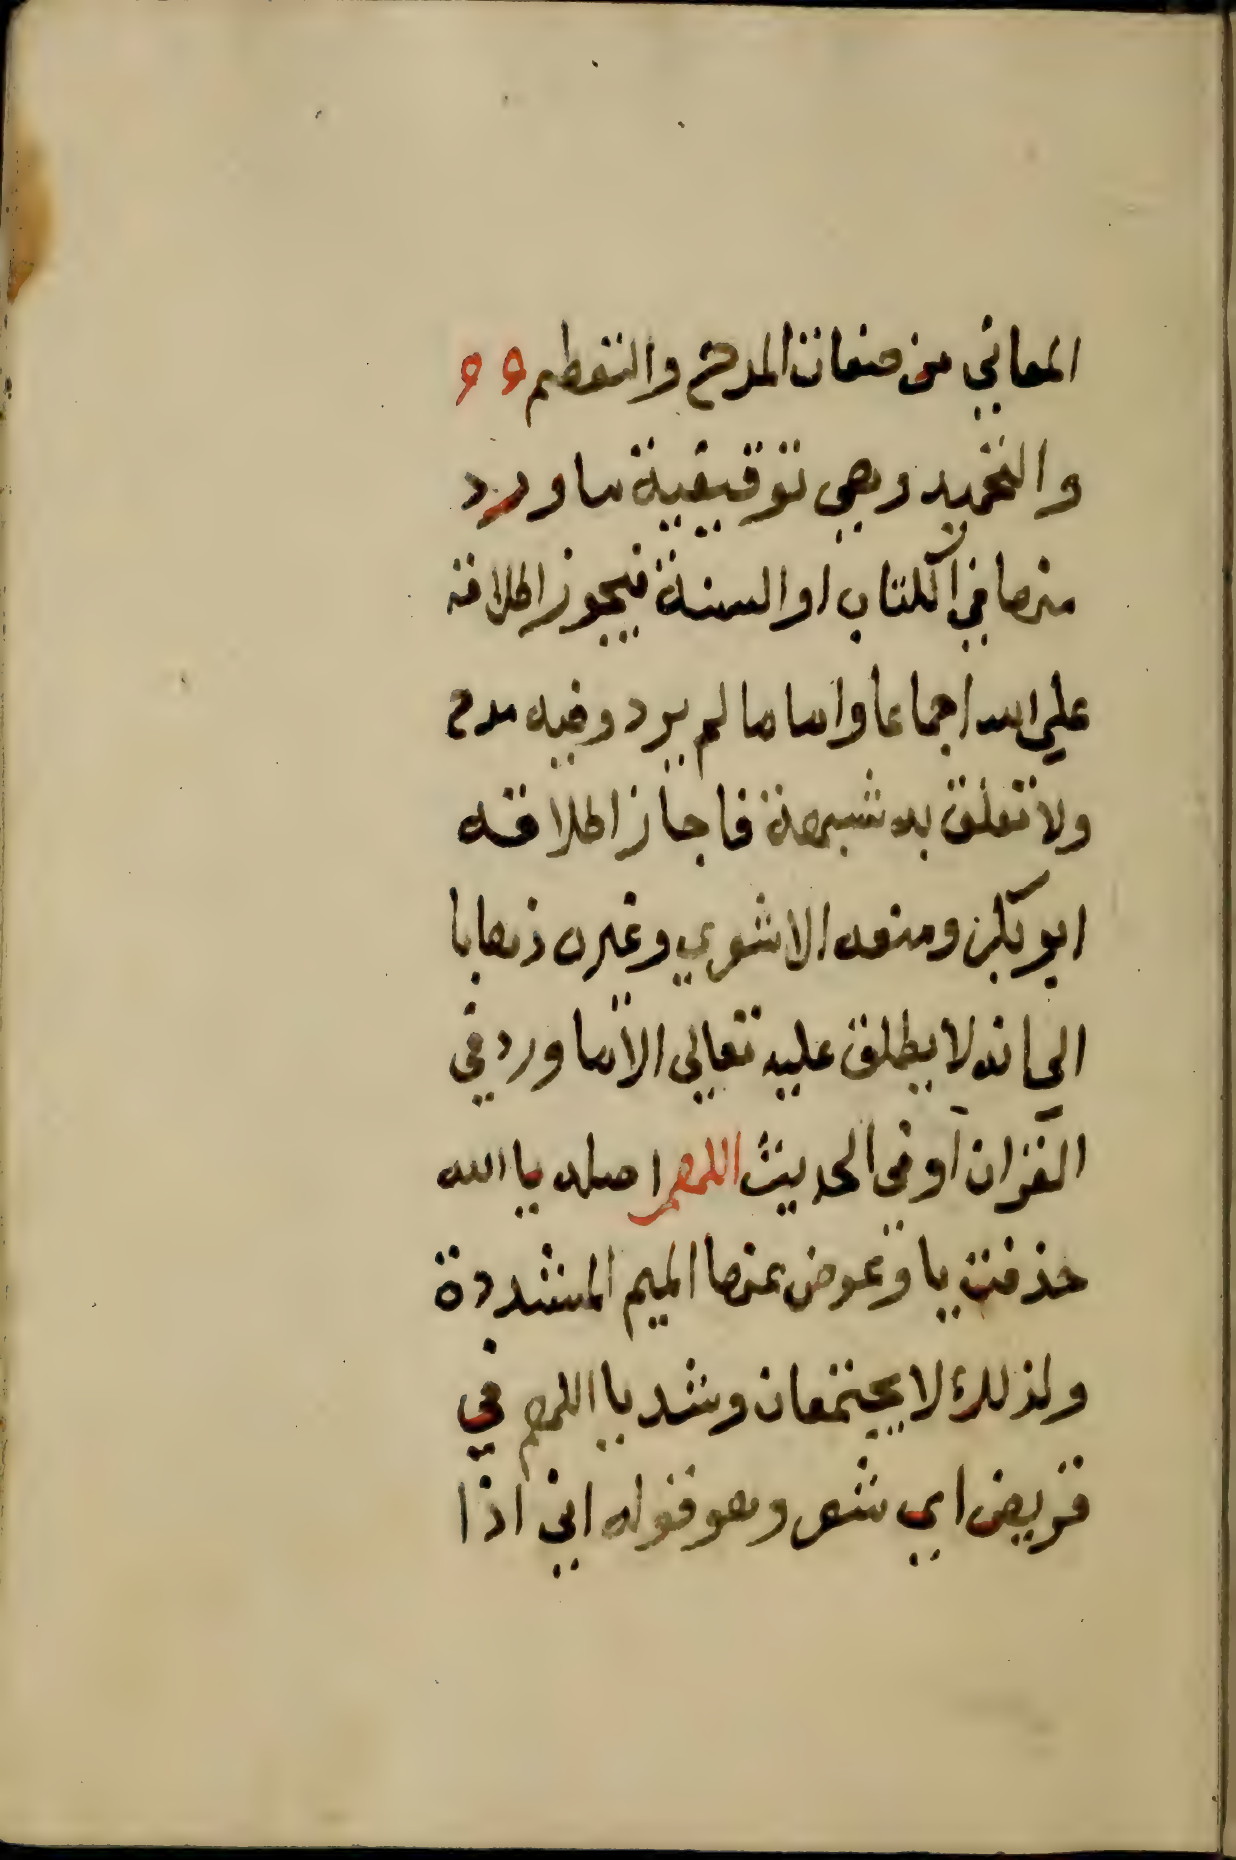 المعاني من صفات المدح والتعظيم
والتحميد وهي توقيفية ما ورد
منها في الكتاب او السنة فيجوز اطلاقه
على الله اجماعا واما ما لم يرد وفيه مدح
ولا تعلق به شبهة فاجاز اطلاقه
ابو بكر ومنعه الاشعري وغيره ذهابا
الى انه لا يطلق عليه تعالى الا ما ورد في
القران او في الحديث اللهم اصله يا الله
حذفت يا وعوض عنها الميم المشددة
ولذلك لا يجتمعان وشد يا اللهم في
قريض اي شعر وهو قوله اني اذا